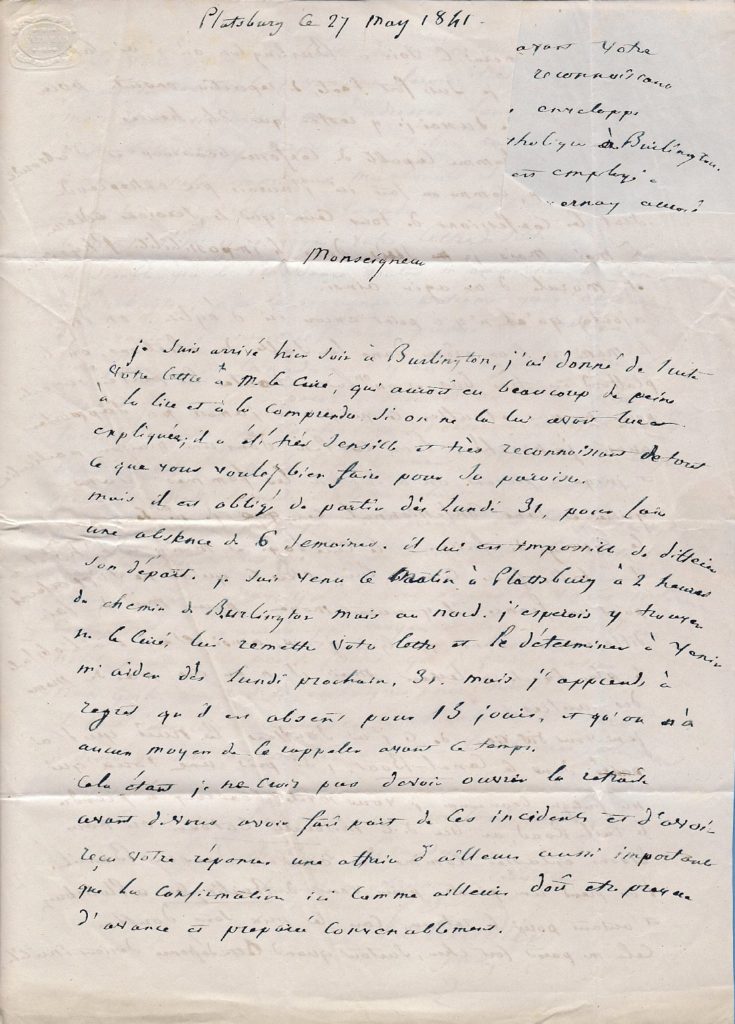 Platsburg le 27 May 1841.
avant votre
reconnoissanc
envelopp
tholique à Burlington.
est employé
Monseigneur
je suis arrivé hier soir à Burlington, j'ai donné de suite
votre lettre à M. le Curé, qui auroit eu beaucoup de peine
à la lire et à la comprendre si on ne la lui avoit lue et
expliquée; il a été très sensible et très reconnoissant de tout
ce que vous voulez bien faire pour sa paroisse.
mais il est obligé de partir dès Lundi 31, pour faire
une abscence de 6 semaines. il lui est impossible de différer
son départ. je suis venu ce matin à Plattsburg à 2 heures
de chemin de Burlington mais au nord. j'esperois y trouver
m. le Curé, lui remettre votre lettre et le déterminer à venir
m'aider dès lundi prochain, 31. mais j'apprends à
regret qu'il est absent pour 15 jours, et qu'on n'a
aucun moyen de le rappeler avant ce temps.
Cela étant je ne crois pas devoir ouvrir la retraite
avant de vous avoir fait part de ces incidents et d'avoir
reçu votre réponse. une affaire d'ailleurs aussi importante
que la confirmation ici comme ailleurs doit etre prevue
d'avance et preparée convenablement.